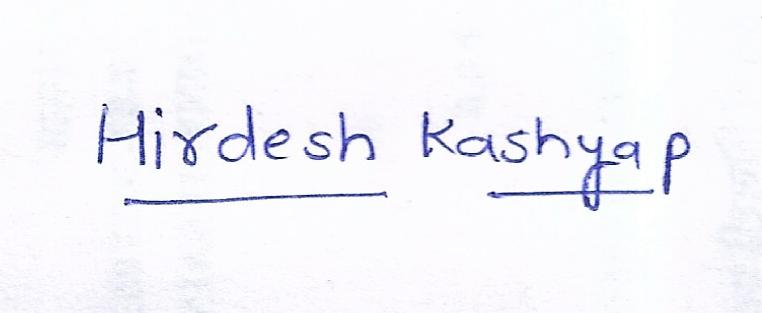 Hirdesh Kashyap